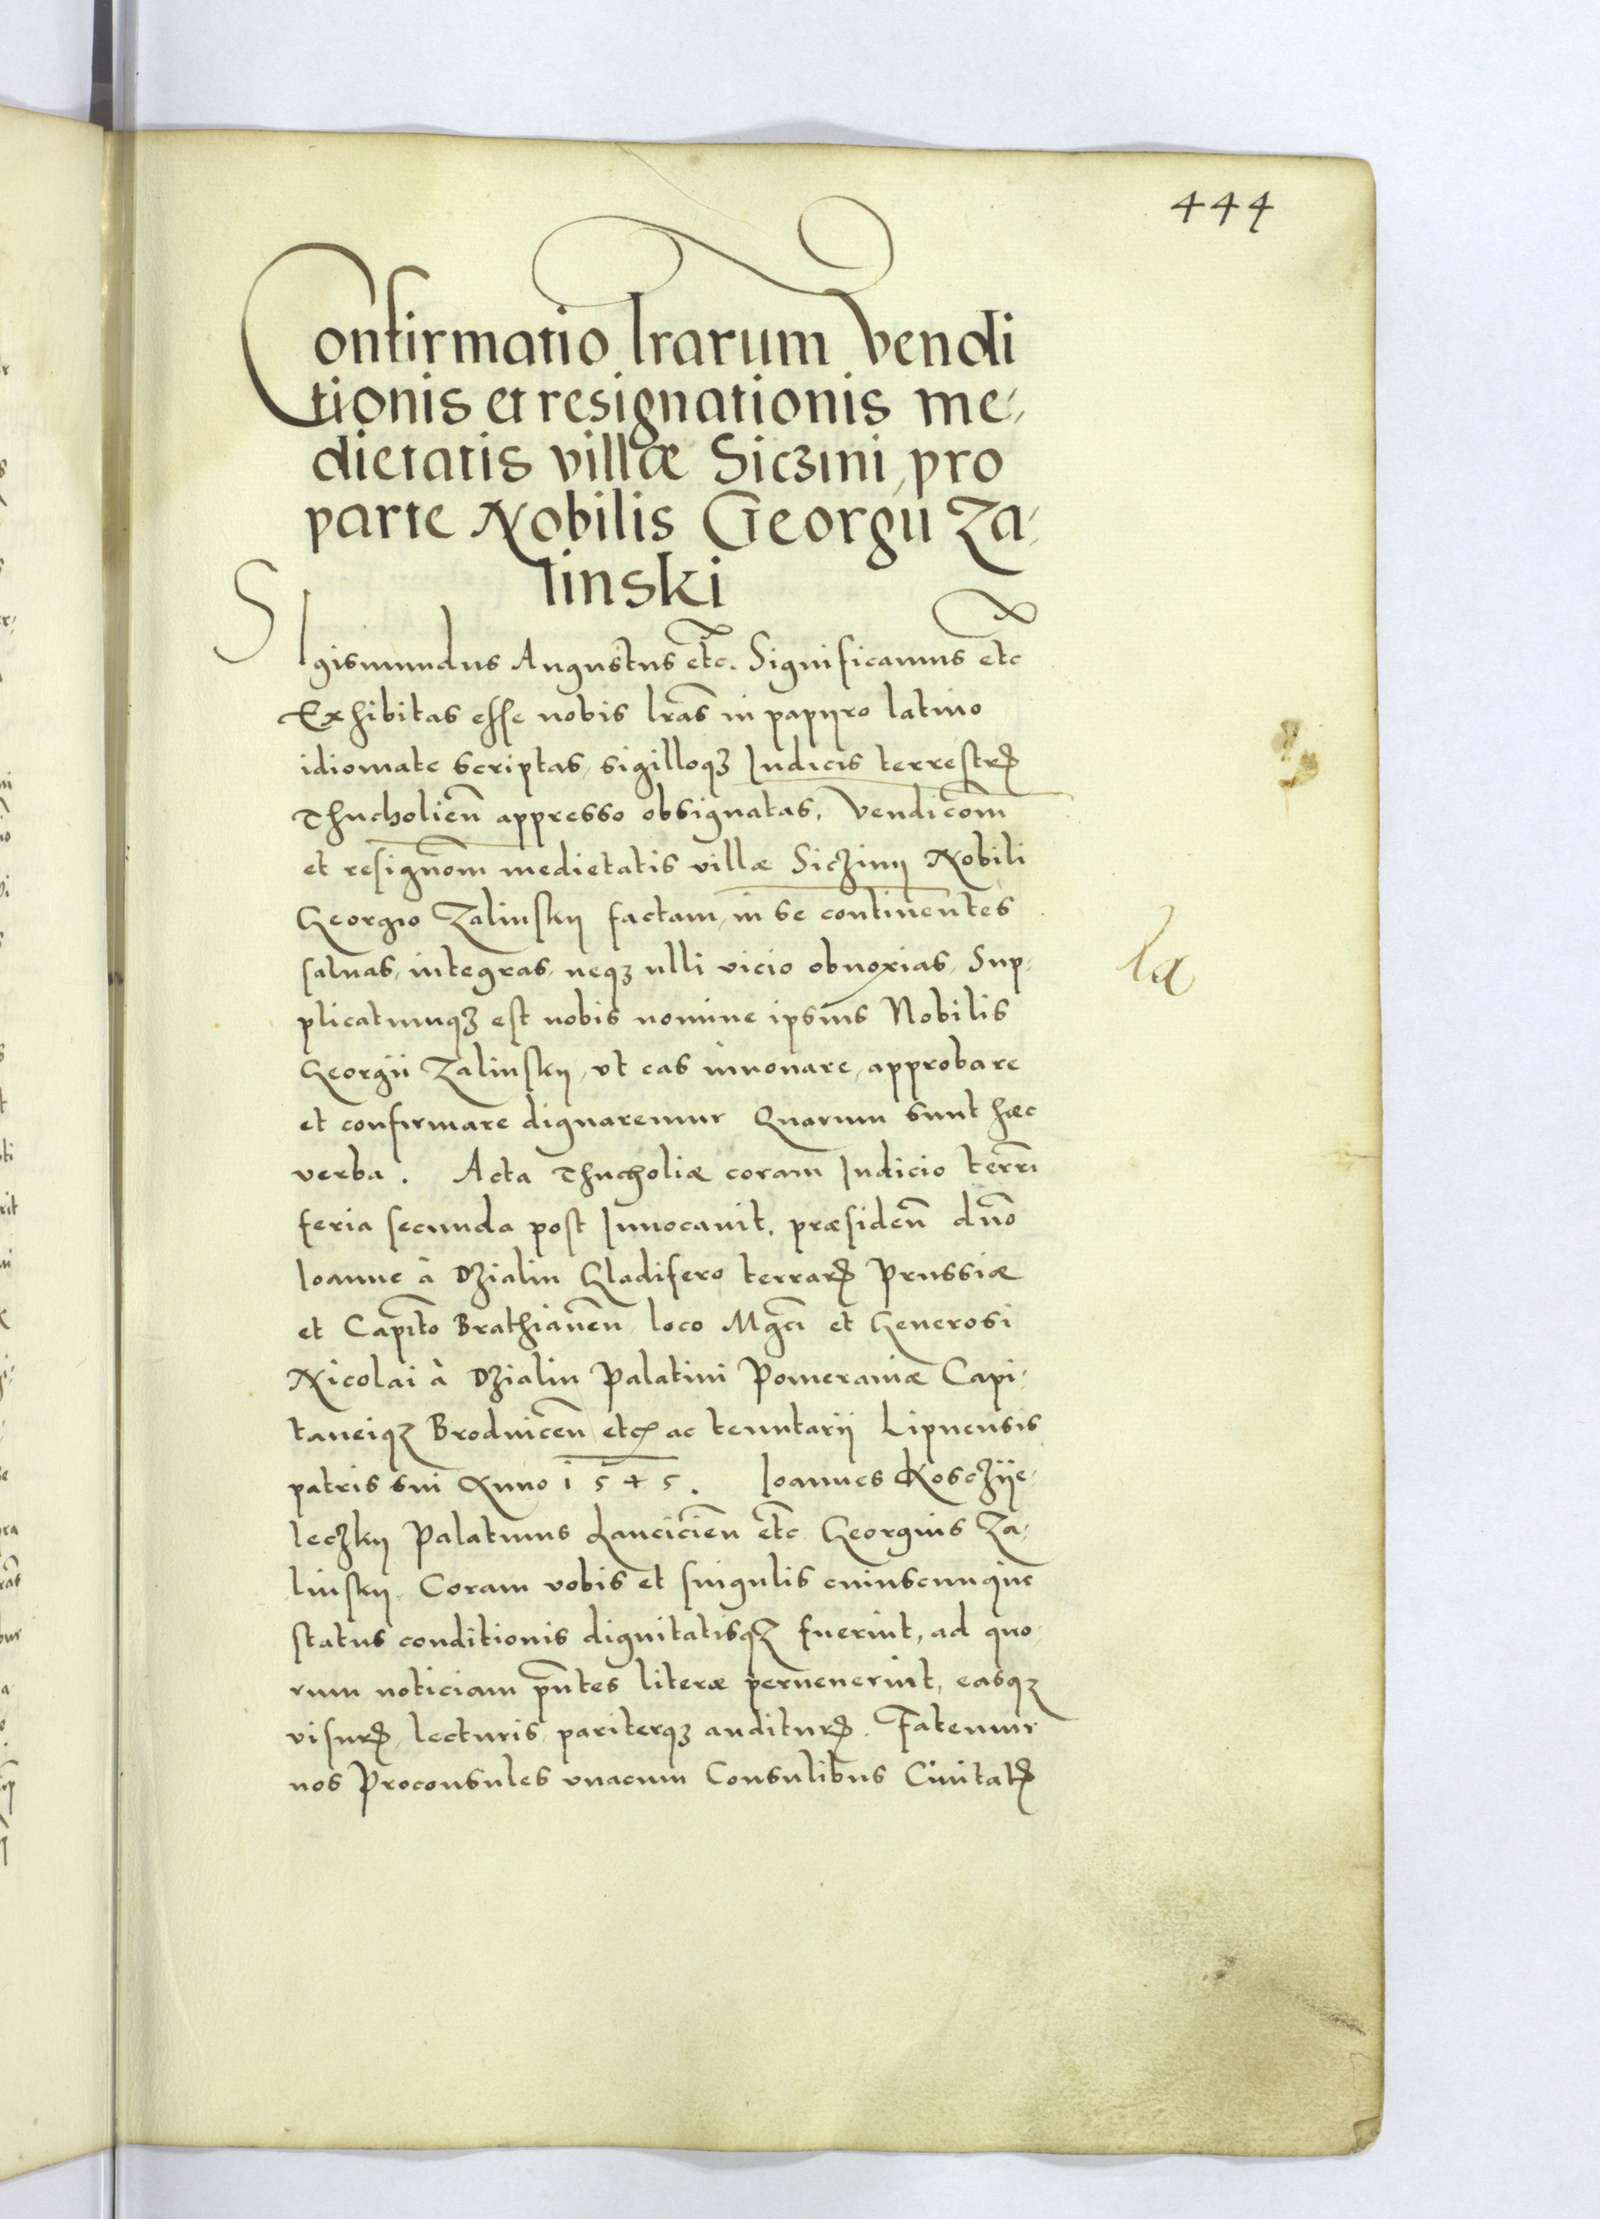 444
Confirmatio lrarum Vendi
tionis et resignationis me-
dietatis villæ Siczini, pro
parte Nobilis Georgii Za-
linski
SIgismundus Augustus etc. Significamus etc
Exhibitas esse nobis lras in papyro latino
idiomate scriptas, sigilloqȝ Iudicis terrestrꝭ
Thucholien appresso obsignatas, Vendicom
et resignom medietatis villæ Siczinij Nobili
Georgio Zalinskij factam, in se continentes
saluas, integras, neqȝ ulli vicio obnoxias, Sup-
plicatumqȝ est nobis nomine ipsius Nobilis
Georgii Zalinskij, vt eas innouare, approbare
et confirmare dignaremur Quarum sunt hæc
verba. Acta Thucholiæ coram Iudicio terrr
feria secunda post Inuocauit, præsiden dno
Ioanne à Dzialin Gladifero terrarꝭ Prussiæ
et Capito Brathianen, loco Mgci et Generosi
Nicolai à Dzialin Palatini Pomeraniæ Capi-
taneiqȝ Brodnicen etcꝭ ac tenutarii Lipnensis
patris sui Anno 1545. Ioannes Kosczije-
leczkij Palatinus Lancicien etc Georgius Za-
linskij. Coram vobis et singulis cuiuscunque
status conditionis dignitatisqȝ fuerint, ad quo-
rum noticiam pntes literæ peruenerint, easqȝ
visurꝭ, lecturis, pariterqȝ auditurꝭ. Fatemur
nos Proconsules vnacum Consulibus Ciuitatꝭ
la